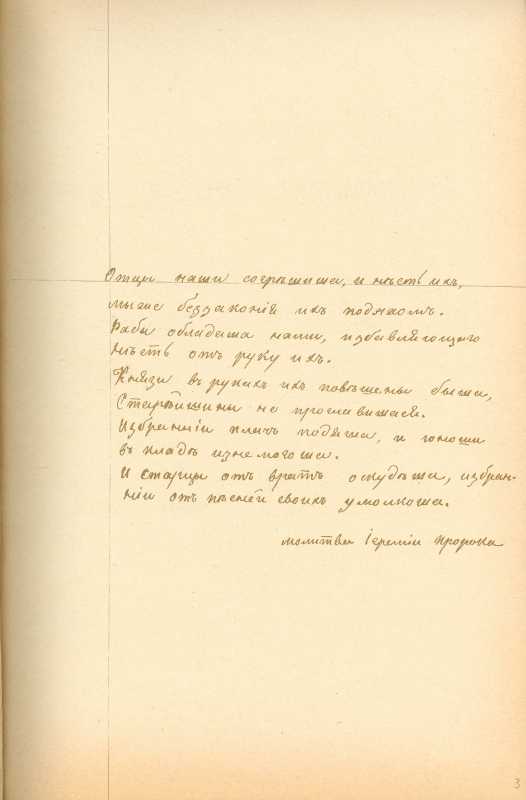 Отцы наши согрѣшиша, и нѣсть ихъ,
мы же беззаконія ихъ подъяхомъ.
Раби обладаша нами, избавляющаго
нѣсть отъ руку ихъ.
Князи въ рукахъ ихъ повѣшены быша,
Старѣйшины не прославишася.
Избранніи плачь подъяша, и юноши
въ кладѣ изнемогоша.
И старцы отъ вратъ оскудѣша, избран-
ніи отъ пѣсней своихъ умолкоша.
молитва Іереміи пророка
3